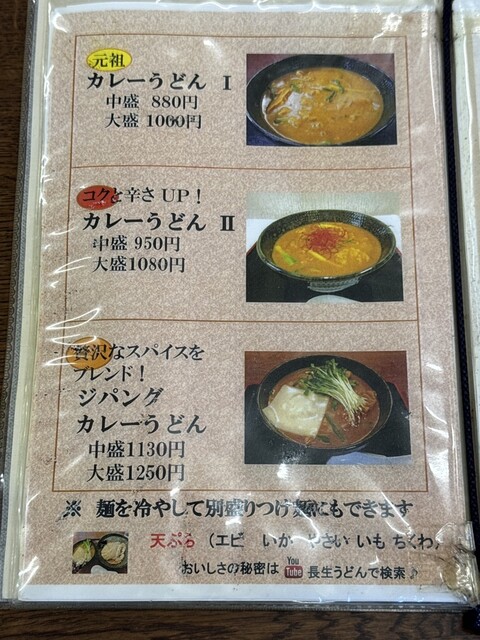 元祖
カレーうどん Ⅰ
中盛 880円
大盛 1000円
コクと辛さ UP！
カレーうどん Ⅱ
中盛 950円
大盛1080円
贅沢なスパイスを
ブレンド！
ジパング
カレーうどん
中盛1130円
大盛1250円
※ 麺を冷やして別盛りつけ麺にもできます
天ぷら （エビ いか やさい いも ちくわ）
おいしさの秘密は You Tube 長生うどんで検索♪